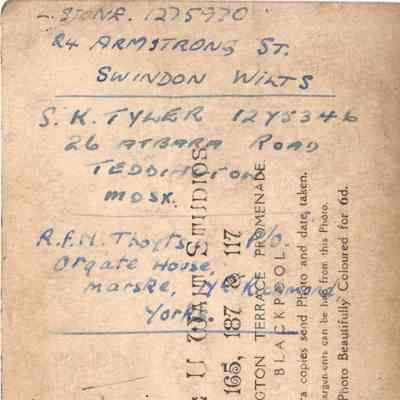 L. STONE. 1275970
24 ARMSTRONG ST.
SWINDON WILTS
S. K. TYLER 1275346
26 ATBARA ROAD
TEDDINGTON
MDSX.
R.F.H. Thoyts P/O.
Orgate House,
Marske, Nr Richmond
Yorks.
U WAIT STUDIOS
165, 187 & 117
GTON TERRACE PROMENADE.
BLACKPOOL
a copies send Photo and date taken.
argements can be had from this Photo.
Photo Beautifully Coloured for 6d.